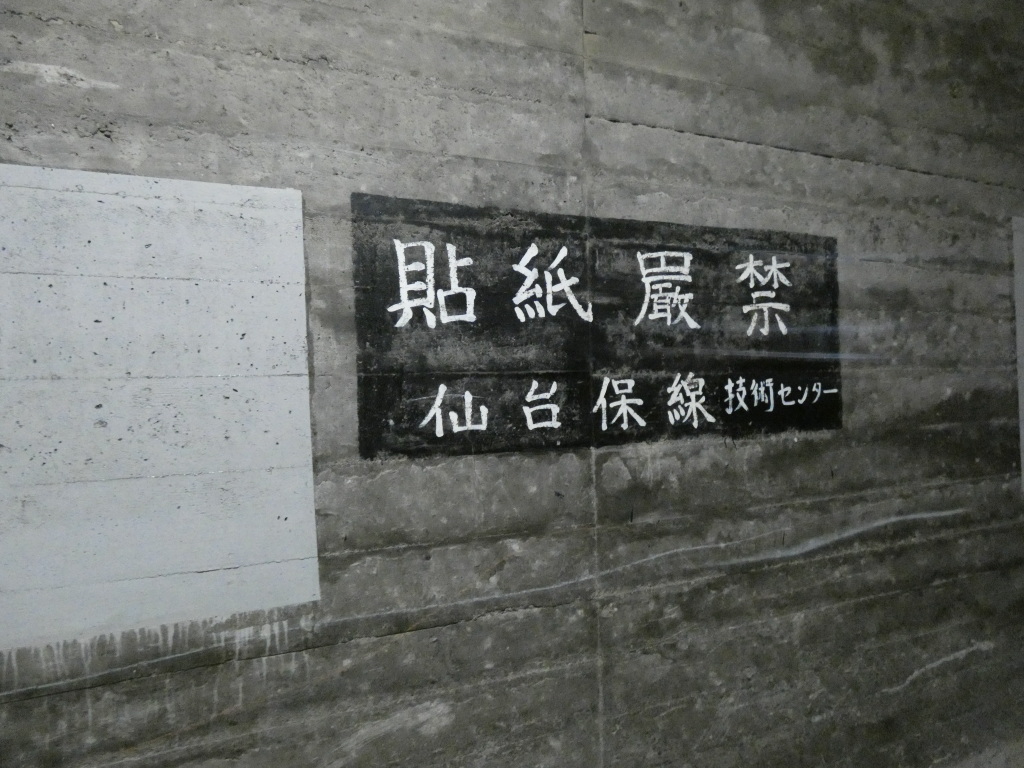 貼紙嚴禁
仙台保線技術センター